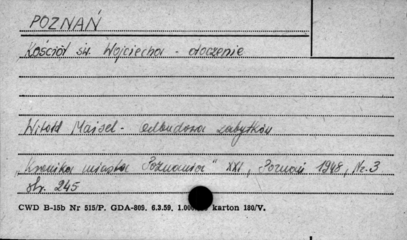 POZNAŃ
Kościół św. Wojciecha - otoczenie
Witold Maisel - odbudowa zabytków
"Kronika miasta Poznania" XXI, Poznań 1948, Nr. 3
str. 245
CWD B-15b Nr 515/P. GDA-809. 6.3.59. 1.000 karton 180/V.